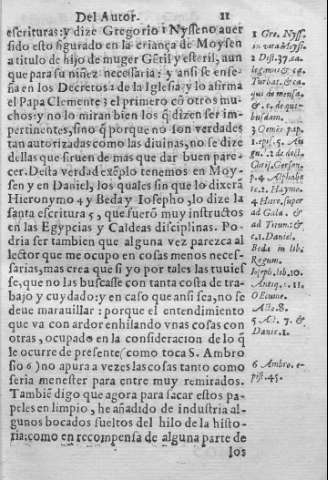 Del Autor.
11
escrituras: y dize Gregorio 1 Nysseno auer
sido esto figurado en la criança de Moysen
a titulo de hijo de muger Gētil y esteril, aun
que para su niñez necessaria: y ansi se ense-
ña en los Decretos 2 de la Iglesia: y lo afirma
el Papa Clemente 3 el primero cō otros mu-
chos: y no lo miran bien los q̄ dizen ser im-
pertinentes, sino q̄ porque no son verdades
tan autorizadas como las diuinas, no se dize
dellas que siruen de mas que dar buen pare
cer. Desta verdad exēplo tenemos en Moy-
sen y en Daniel, los quales sin que lo dixera
Hieronymo 4 y Beda y Iosepho, lo dize la
santa escritura 5, que fuerō muy instructos
en las Egypcias y Caldeas disciplinas. Po-
dria ser tambien que alguna vez parezca al
lector que me ocupo en cosas menos neces-
sarias, mas crea que si yo por tales las tuuies
se, que no las buscasse con tanta costa de tra-
bajo y cuydado: y en caso que ansi sea, no se
deue marauillar: porque el entendimiento
que va con ardor enhilando vnas cosas con
otras, ocupado en la consideracion de lo q̄
le ocurre de presente (como toca S. Ambro
sio 6) no apura a vezes las cosas tanto como
seria menester para entre muy remirados.
Tambiē digo que agora para sacar estos pa-
peles en limpio, he añadido de industria al-
gunos bocados sueltos del hilo de la histo-
ria: como en recompensa de alguna parte de
los
1 Gre. Nyss.
in vita Moysi.
2 Dist. 37. ca.
legimus & ca.
Turbat. & ca.
qui de mensa,
& c. de qui-
busdam.
3 Omnis pap.
1. epi. 5. Au
gu. 2. de doct.
Chri. Gerson.
p. 4. Alphabe
te. 2. Haymo.
4 Hiere. super
ad Gala. &
ad Titum: &
c. 1. Daniel.
Beda in lib.
Regum.
Ioseph. lib. 10.
Antiq. c. 11.
Act. 8.
5 Act. 7. &
Dani. 1.
6 Ambro. e-
pist. 45.